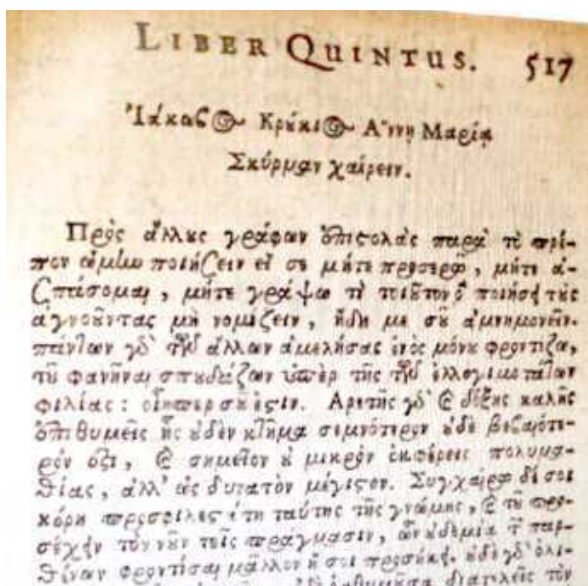 LIBER QUINTUS. 517
Ἰάκωβος Κρύκιος Ἄννῃ Μαρίᾳ
Σκύρμαν χαίρειν.
Πρὸς ἄλλους γράφων ἐπιστολὰς παρὰ τὸ πρέ-
πον ἂν ποιήσειν εἴ σε μήτε προσερῶ, μήτε ἀ-
σπάσομαι, μήτε γράψω τι τοιοῦτον ὃ ποιήσῃ τοὺς
ἀγνοοῦντας μὴ νομίζειν, ἤδη με σοῦ ἀμνημονεῖν.
πάντων γὰρ τῶν ἄλλων ἀμελήσας ἑνὸς μόνου φροντίζω,
τοῦ φανῆναι σπουδάζων ὑπὲρ τῆς τῶν ἐλλογιμωτάτων
φιλίας: Ἀρετῆς γὰρ καὶ δόξης καλῆς
ἐπιθυμεῖς ἧς οὐδὲν κτῆμα σεμνότερον οὐδὲ βεβαιότε-
ρόν ἐστι, καὶ σημεῖον οὐ μικρὸν ἐκφέρεις πολυμα-
θίας, ἀλλ' ὡς δυνατὸν μέγιστον. Συγχαίρω δέ σοι
κόρη προσφιλεστάτη ταύτης τῆς γνώμης, καὶ τοῦ προ-
σέχειν τὸν νοῦν τοῖς πράγμασιν, ὧν οὐδεμία
μᾶλλον ἢ σοὶ
τὸν